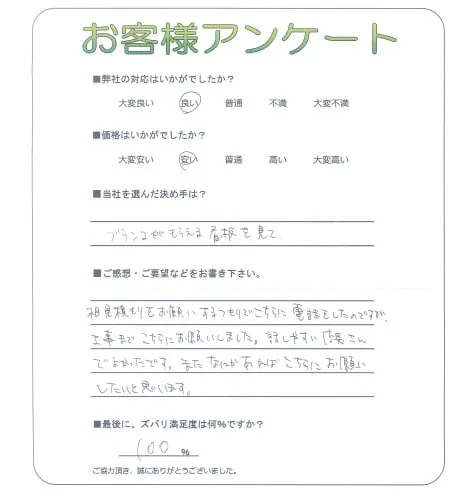 お客様アンケート
■弊社の対応はいかがでしたか?
大変良い 良い 普通 不満 大変不満
■価格はいかがでしたか?
大変安い 安い 普通 高い 大変高い
■当社を選んだ決め手は?
ブランコがもらえる看板を見て
■ご感想・ご要望などをお書き下さい。
相見積もりをお願いするつもりでこちらに電話をしたのですが、
工事までこちらにお願いしました。話しやすい さん
でよかったです。またなにかあればこちらにお願い
したいと思います。
■最後に、ズバリ満足度は何%ですか?
100 %
ご協力頂き、誠にありがとうございました。